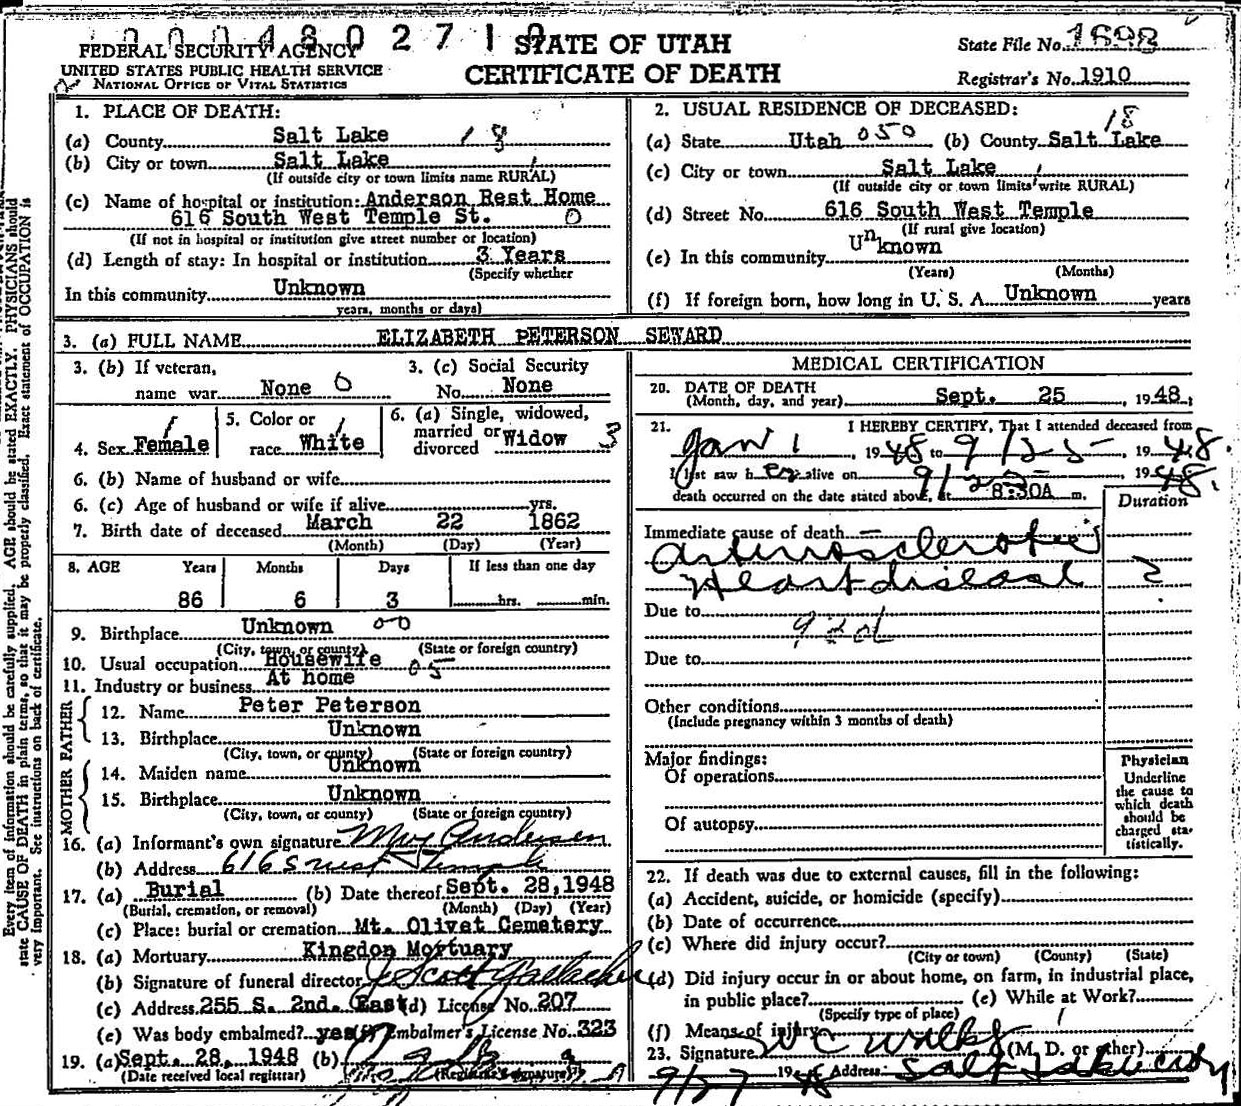 0 0 0 4 8 0 2 7 1 9
FEDERAL SECURITY AGENCY
UNITED STATES PUBLIC HEALTH SERVICE
NATIONAL OFFICE OF VITAL STATISTICS
STATE OF UTAH
CERTIFICATE OF DEATH
State File No. 1698
Registrar's No. 1910
Every item of information should be carefully supplied. AGE should be stated EXACTLY. PHYSICIANS should
state CAUSE OF DEATH in plain terms, so that it may be properly classified. Exact statement of OCCUPATION is
very important. See instructions on back of certificate.
1. PLACE OF DEATH:
(a) County Salt Lake 18
(b) City or town Salt Lake
(If outside city or town limits name RURAL)
(c) Name of hospital or institution: Anderson Rest Home
616 South West Temple St. 0
(If not in hospital or institution give street number or location)
(d) Length of stay: In hospital or institution 3 Years
(Specify whether
In this community Unknown
years, months or days)
2. USUAL RESIDENCE OF DECEASED:
18
(a) State Utah 050 (b) County Salt Lake
(c) City or town Salt Lake
(If outside city or town limits write RURAL)
(d) Street No. 616 South West Temple
(If rural give location)
(e) In this community Unknown
(Years) (Months)
(f) If foreign born, how long in U. S. A. Unknown years
3. (a) FULL NAME ELIZABETH PETERSON SEWARD
3. (b) If veteran,
name war None 0
3. (c) Social Security
No. None
4. Sex Female
5. Color or
race White
6. (a) Single, widowed,
married or
divorced Widow 3
6. (b) Name of husband or wife
6. (c) Age of husband or wife if alive yrs.
7. Birth date of deceased March 22 1862
(Month) (Day) (Year)
8. AGE Years Months Days If less than one day
86 6 3 hrs. min.
9. Birthplace Unknown 00
(City, town, or county) (State or foreign country)
10. Usual occupation Housewife 05
11. Industry or business At home
FATHER
12. Name Peter Peterson
13. Birthplace Unknown
(City, town, or county) (State or foreign country)
MOTHER
14. Maiden name Unknown
15. Birthplace Unknown
(City, town, or county) (State or foreign country)
16. (a) Informant's own signature Andersen
(b) Address 616 S West Temple
17. (a) Burial (b) Date thereof Sept. 28, 1948
(Burial, cremation, or removal) (Month) (Day) (Year)
(c) Place: burial or cremation Mt. Olivet Cemetery
18. (a) Mortuary Kingdon Mortuary
(b) Signature of funeral director J Scott Gallacher
(c) Address 255 S. 2nd. East (d) License No. 207
(e) Was body embalmed? yes (f) Embalmer's License No. 323
19. (a) Sept. 28, 1948 (b)
(Date received local registrar) (Registrar's signature)
MEDICAL CERTIFICATION
20. DATE OF DEATH
(Month, day, and year) Sept. 25, 1948;
21. I HEREBY CERTIFY, That I attended deceased from
Jan 1, 1948 to 9/25-, 1948.
I last saw her alive on 9/25, 1948.
death occurred on the date stated above, at 8:30A m.
Duration
Immediate cause of death
Arteriosclerotic
Heart disease ?
Due to
Due to
Other conditions
(Include pregnancy within 3 months of death)
Major findings:
Of operations
Of autopsy
Physician
Underline
the cause to
which death
should be
charged sta-
tistically.
22. If death was due to external causes, fill in the following:
(a) Accident, suicide, or homicide (specify)
(b) Date of occurrence
(c) Where did injury occur?
(City or town) (County) (State)
(d) Did injury occur in or about home, on farm, in industrial place,
in public place? (e) While at Work?
(Specify type of place)
(f) Means of injury
23. Signature W C Walker (M. D. or other)
9/27 1948 Address Salt Lake City